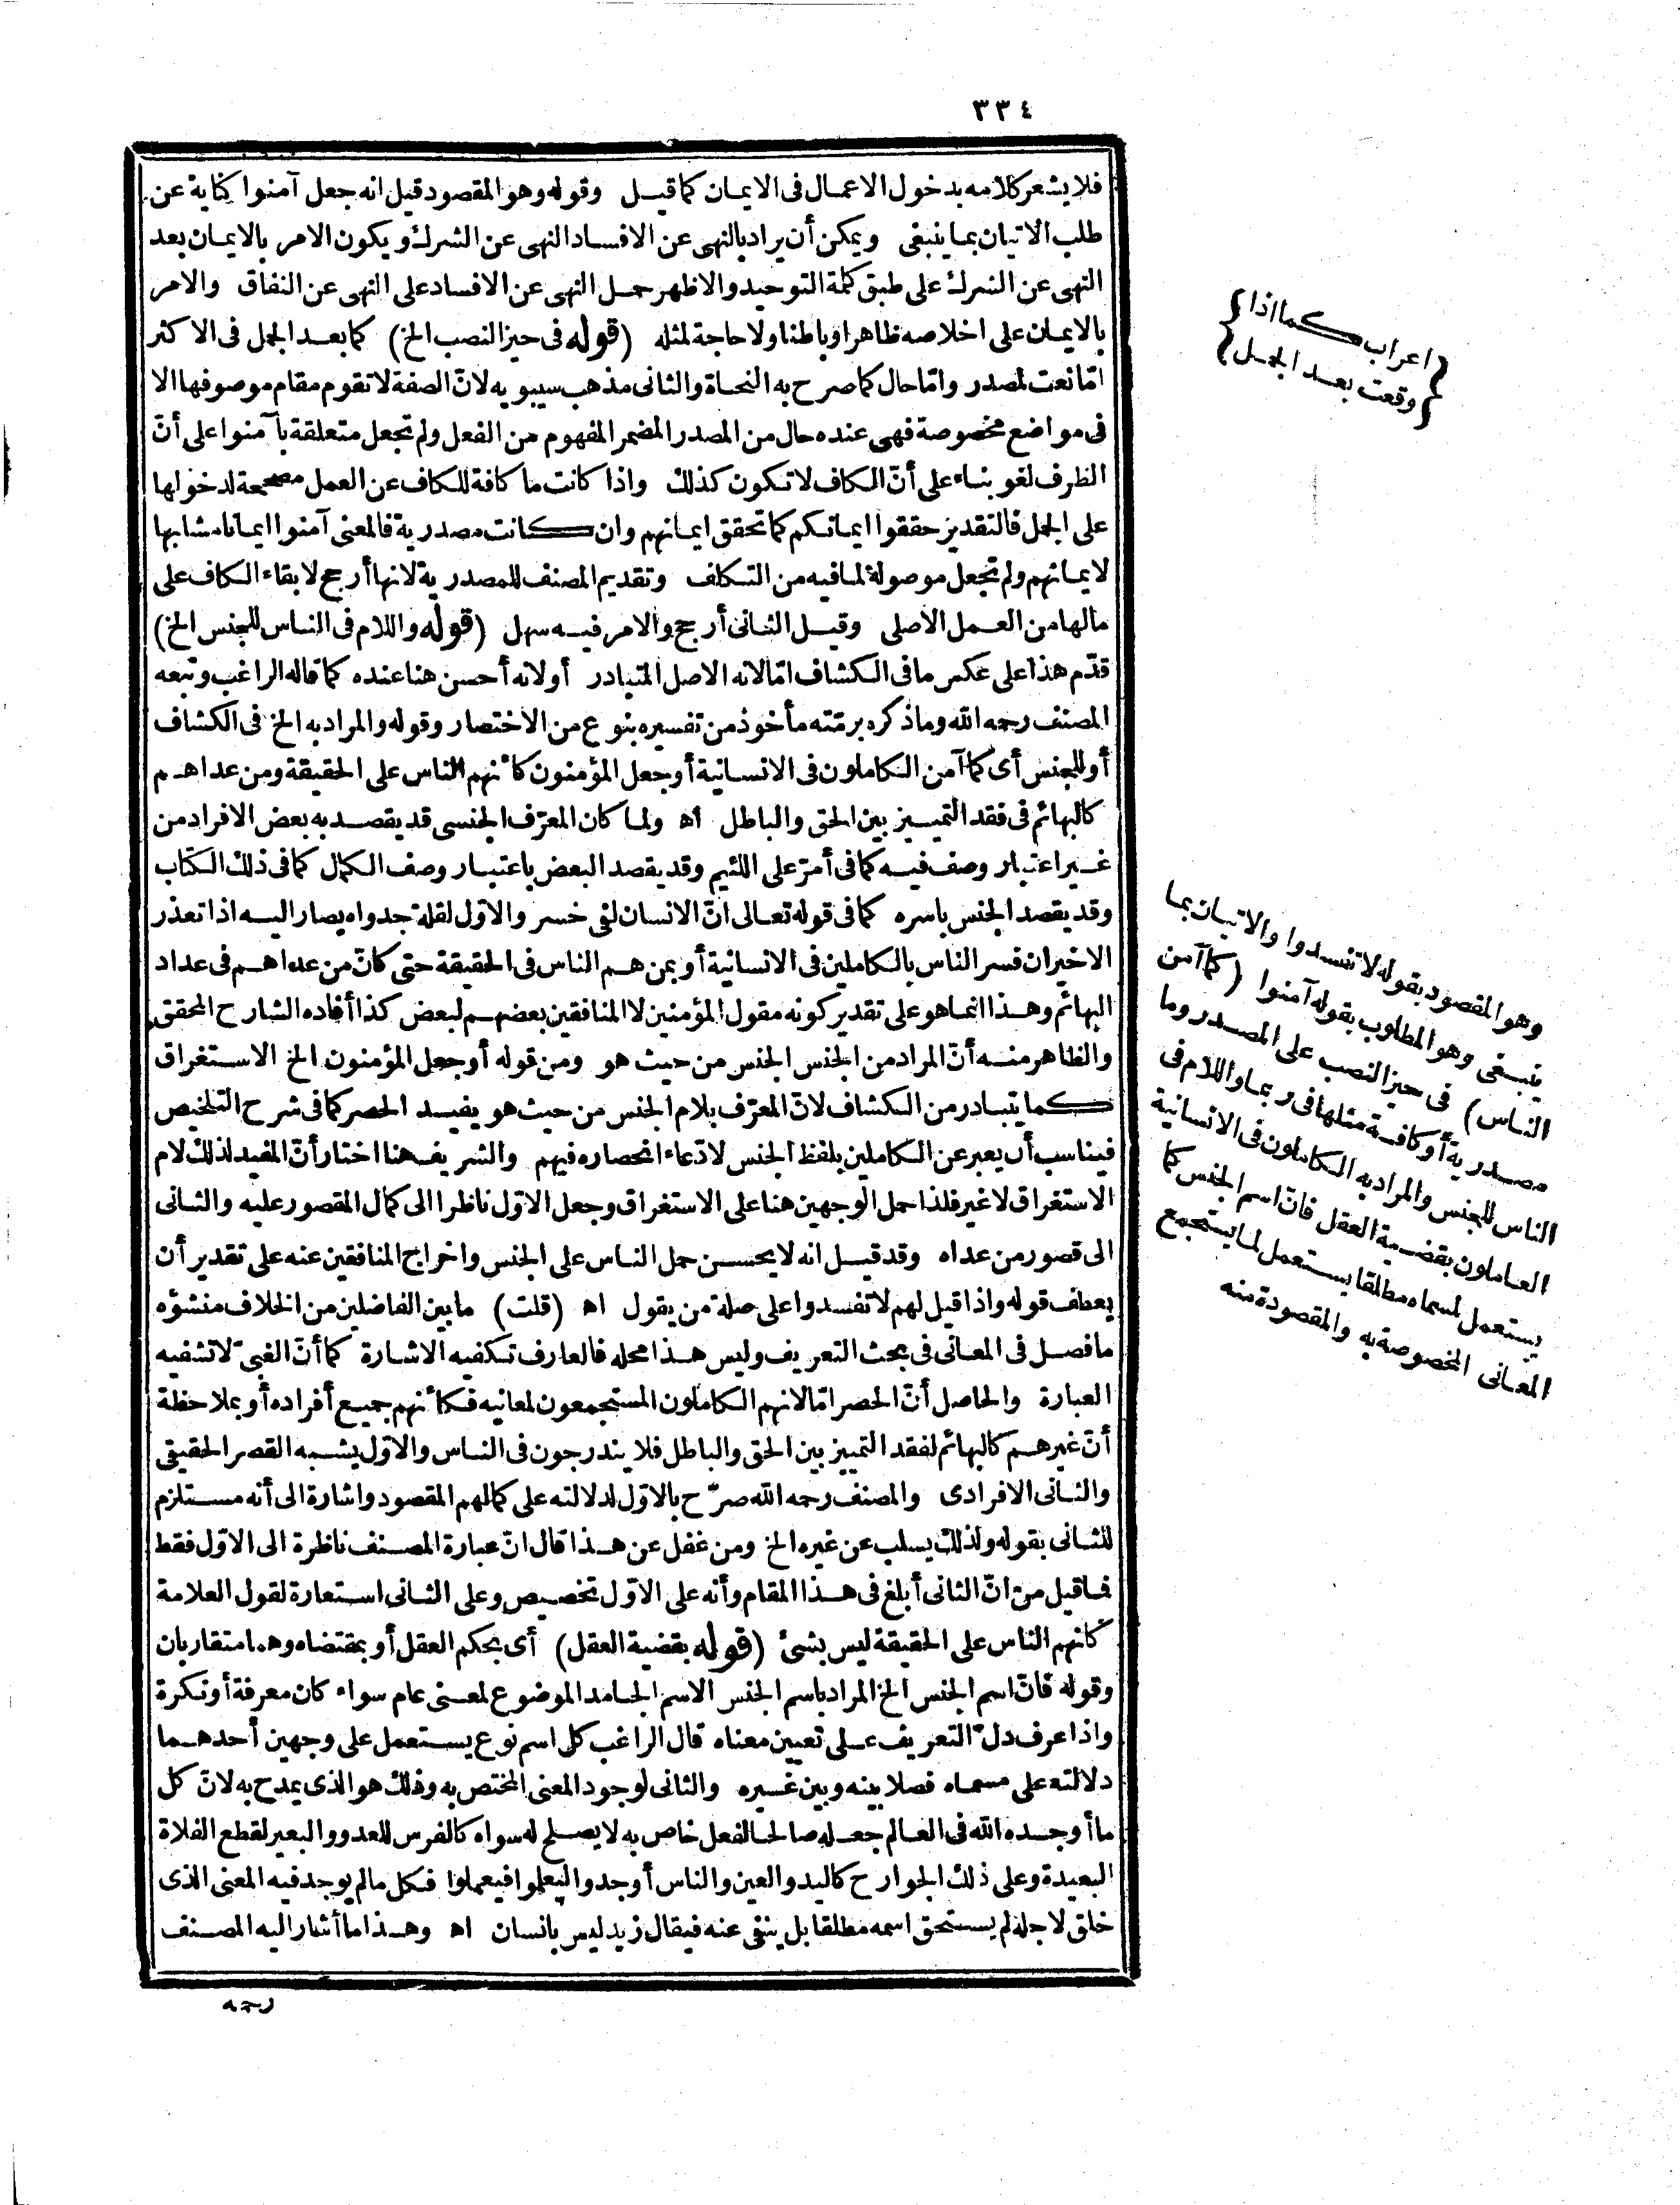 ٣٣٤
فلا يشعر كلامه بدخول الاعمال فى الايمان كما قيل وقوله وهو المقصود قيل انه جعل آمنوا كناية عن
طلب الاتيان بما ينبغى ويمكن أن يراد بالنهى عن الافساد النهى عن الشرك ويكون الامر بالايمان بعد
النهى عن الشرك على طبق كلمة التوحيد والاظهر حمل النهى عن الافساد على النهى عن النفاق والامر
بالايمان على اخلاصه ظاهرا وباطنا ولا حاجة لمثله (قوله فى حيز النصب الخ) كما بعد الجمل فى الاكثر
امّا نعت لمصدر وامّا حال كما صرح به النحاة والثانى مذهب سيبويه لانّ الصفة لا تقوم مقام موصوفها الا
فى مواضع مخصوصة فهى عنده حال من المصدر المضمر المفهوم من الفعل ولم تجعل متعلقة بآمنوا على أنّ
الظرف لغو بناء على أنّ الكاف لا تكون كذلك واذا كانت ما كافة للكاف عن العمل مصححة لدخولها
على الجمل فالتقدير حققوا ايمانكم كما تحقق ايمانهم وان كانت مصدرية فالمعنى آمنوا ايمانا مشابها
لايمانهم ولم تجعل موصولة لما فيه من التكلف وتقديم المصنف للمصدرية لانها أرجح لابقاء الكاف على
مالها من العمل الاصلى وقيل الثانى أرجح والامر فيه سهل (قوله واللام فى الناس للجنس الخ)
قدّم هذا على عكس ما فى الكشاف امّا لانه الاصل المتبادر أو لانه أحسن هنا عنده كما قاله الراغب وتبعه
المصنف رحمه الله وما ذكره برمّته مأخوذ من تفسيره بنوع من الاختصار وقوله والمراد به الخ فى الكشاف
أو للجنس أى كما آمن الكاملون فى الانسانية أو جعل المؤمنون كأنهم الناس على الحقيقة ومن عداهم
كالبهائم فى فقد التمييز بين الحق والباطل اه ولما كان المعرّف الجنسى قد يقصد به بعض الافراد من
غير اعتبار وصف فيه كما فى أمرّ على اللئيم وقد يقصد البعض باعتبار وصف الكمال كما فى ذلك الكتاب
وقد يقصد الجنس باسره كما فى قوله تعالى انّ الانسان لفى خسر والاوّل لقلة جدواه يصار اليه اذا تعذر
الاخيران فسر الناس بالكاملين فى الانسانية أو بمن هم الناس فى الحقيقة حتى كانّ من عداهم فى عداد
البهائم وهذا انما هو على تقدير كونه مقول المؤمنين لا المنافقين بعضهم لبعض كذا أفاده الشارح المحقق
والظاهر منه أنّ المراد من الجنس الجنس من حيث هو ومن قوله أو جعل المؤمنون الخ الاستغراق
كما يتبادر من الكشاف لانّ المعرّف بلام الجنس من حيث هو يفيد الحصر كما فى شرح التلخيص
فيناسب أن يعبر عن الكاملين بلفظ الجنس لادّعاء انحصاره فيهم والشريف هنا اختار أنّ المفيد لذلك لام
الاستغراق لا غير فلذا حمل الوجهين هنا على الاستغراق وجعل الاوّل ناظرا الى كمال المقصور عليه والثانى
الى قصور من عداه وقد قيل انه لا يحسن حمل الناس على الجنس واخراج المنافقين عنه على تقدير أن
يعطف قوله واذا قيل لهم لا تفسدوا على صلة من يقول اه (قلت) ما بين الفاضلين من الخلاف منشؤه
ما فصل فى المعانى فى بحث التعريف وليس هذا محله فالعارف تكفيه الاشارة كما أنّ الغبىّ لا تشفيه
العبارة والحاصل أنّ الحصر امّا لانهم الكاملون المستجمعون لمعانيه فكأنهم جميع أفراده أو بملاحظة
أنّ غيرهم كالبهائم لفقد التمييز بين الحق والباطل فلا يندرجون فى الناس والاوّل يشبه القصر الحقيقى
والثانى الافرادى والمصنف رحمه الله صرّح بالاوّل لدلالته على كمالهم المقصود واشارة الى أنه مستلزم
للثانى بقوله ولذلك يسلب عن غيره الخ ومن غفل عن هذا قال انّ عبارة المصنف ناظرة الى الاوّل فقط
فما قيل من انّ الثانى أبلغ فى هذا المقام وأنه على الاوّل تخصيص وعلى الثانى استعارة لقول العلامة
كانهم الناس على الحقيقة ليس بشئ (قوله بقضية العقل) أى بحكم العقل أو بمقتضاه وهما متقاربان
وقوله فانّ اسم الجنس الخ المراد باسم الجنس الاسم الجامد الموضوع لمعنى عام سواء كان معرفة أو نكرة
واذا عرف دلّ التعريف على تعيين معناه قال الراغب كل اسم نوع يستعمل على وجهين أحدهما
دلالته على مسماه فصلا بينه وبين غيره والثانى لوجود المعنى المختص به وذلك هو الذى يمدح به لانّ كل
ما أوجده الله فى العالم جعله صالحا لفعل خاص به لا يصلح له سواه كالفرس للعدو والبعير لقطع الفلاة
البعيدة وعلى ذلك الجوارح كاليد والعين والناس أوجدوا ليعلموا فيعملوا فكل مالم يوجد فيه المعنى الذى
خلق لاجله لم يستحق اسمه مطلقا بل ينفى عنه فيقال زيد ليس بانسان اه وهذا ما أشار اليه المصنف
رحمه
{اعراب كما اذا}
{وقعت بعد الجمل}
وهو المقصود بقوله لا تفسدوا والاتيان بما
ينبغى وهو المطلوب بقوله آمنوا (كما آمن
الناس) فى حيز النصب على المصدر وما
مصدرية أو كافة مثلها فى ربما واللام فى
الناس للجنس والمراد به الكاملون فى الانسانية
العاملون بقضية العقل فانّ اسم الجنس كما
يستعمل لمسماه مطلقا يستعمل لما يستجمع
المعانى المخصوصة به والمقصودة منه